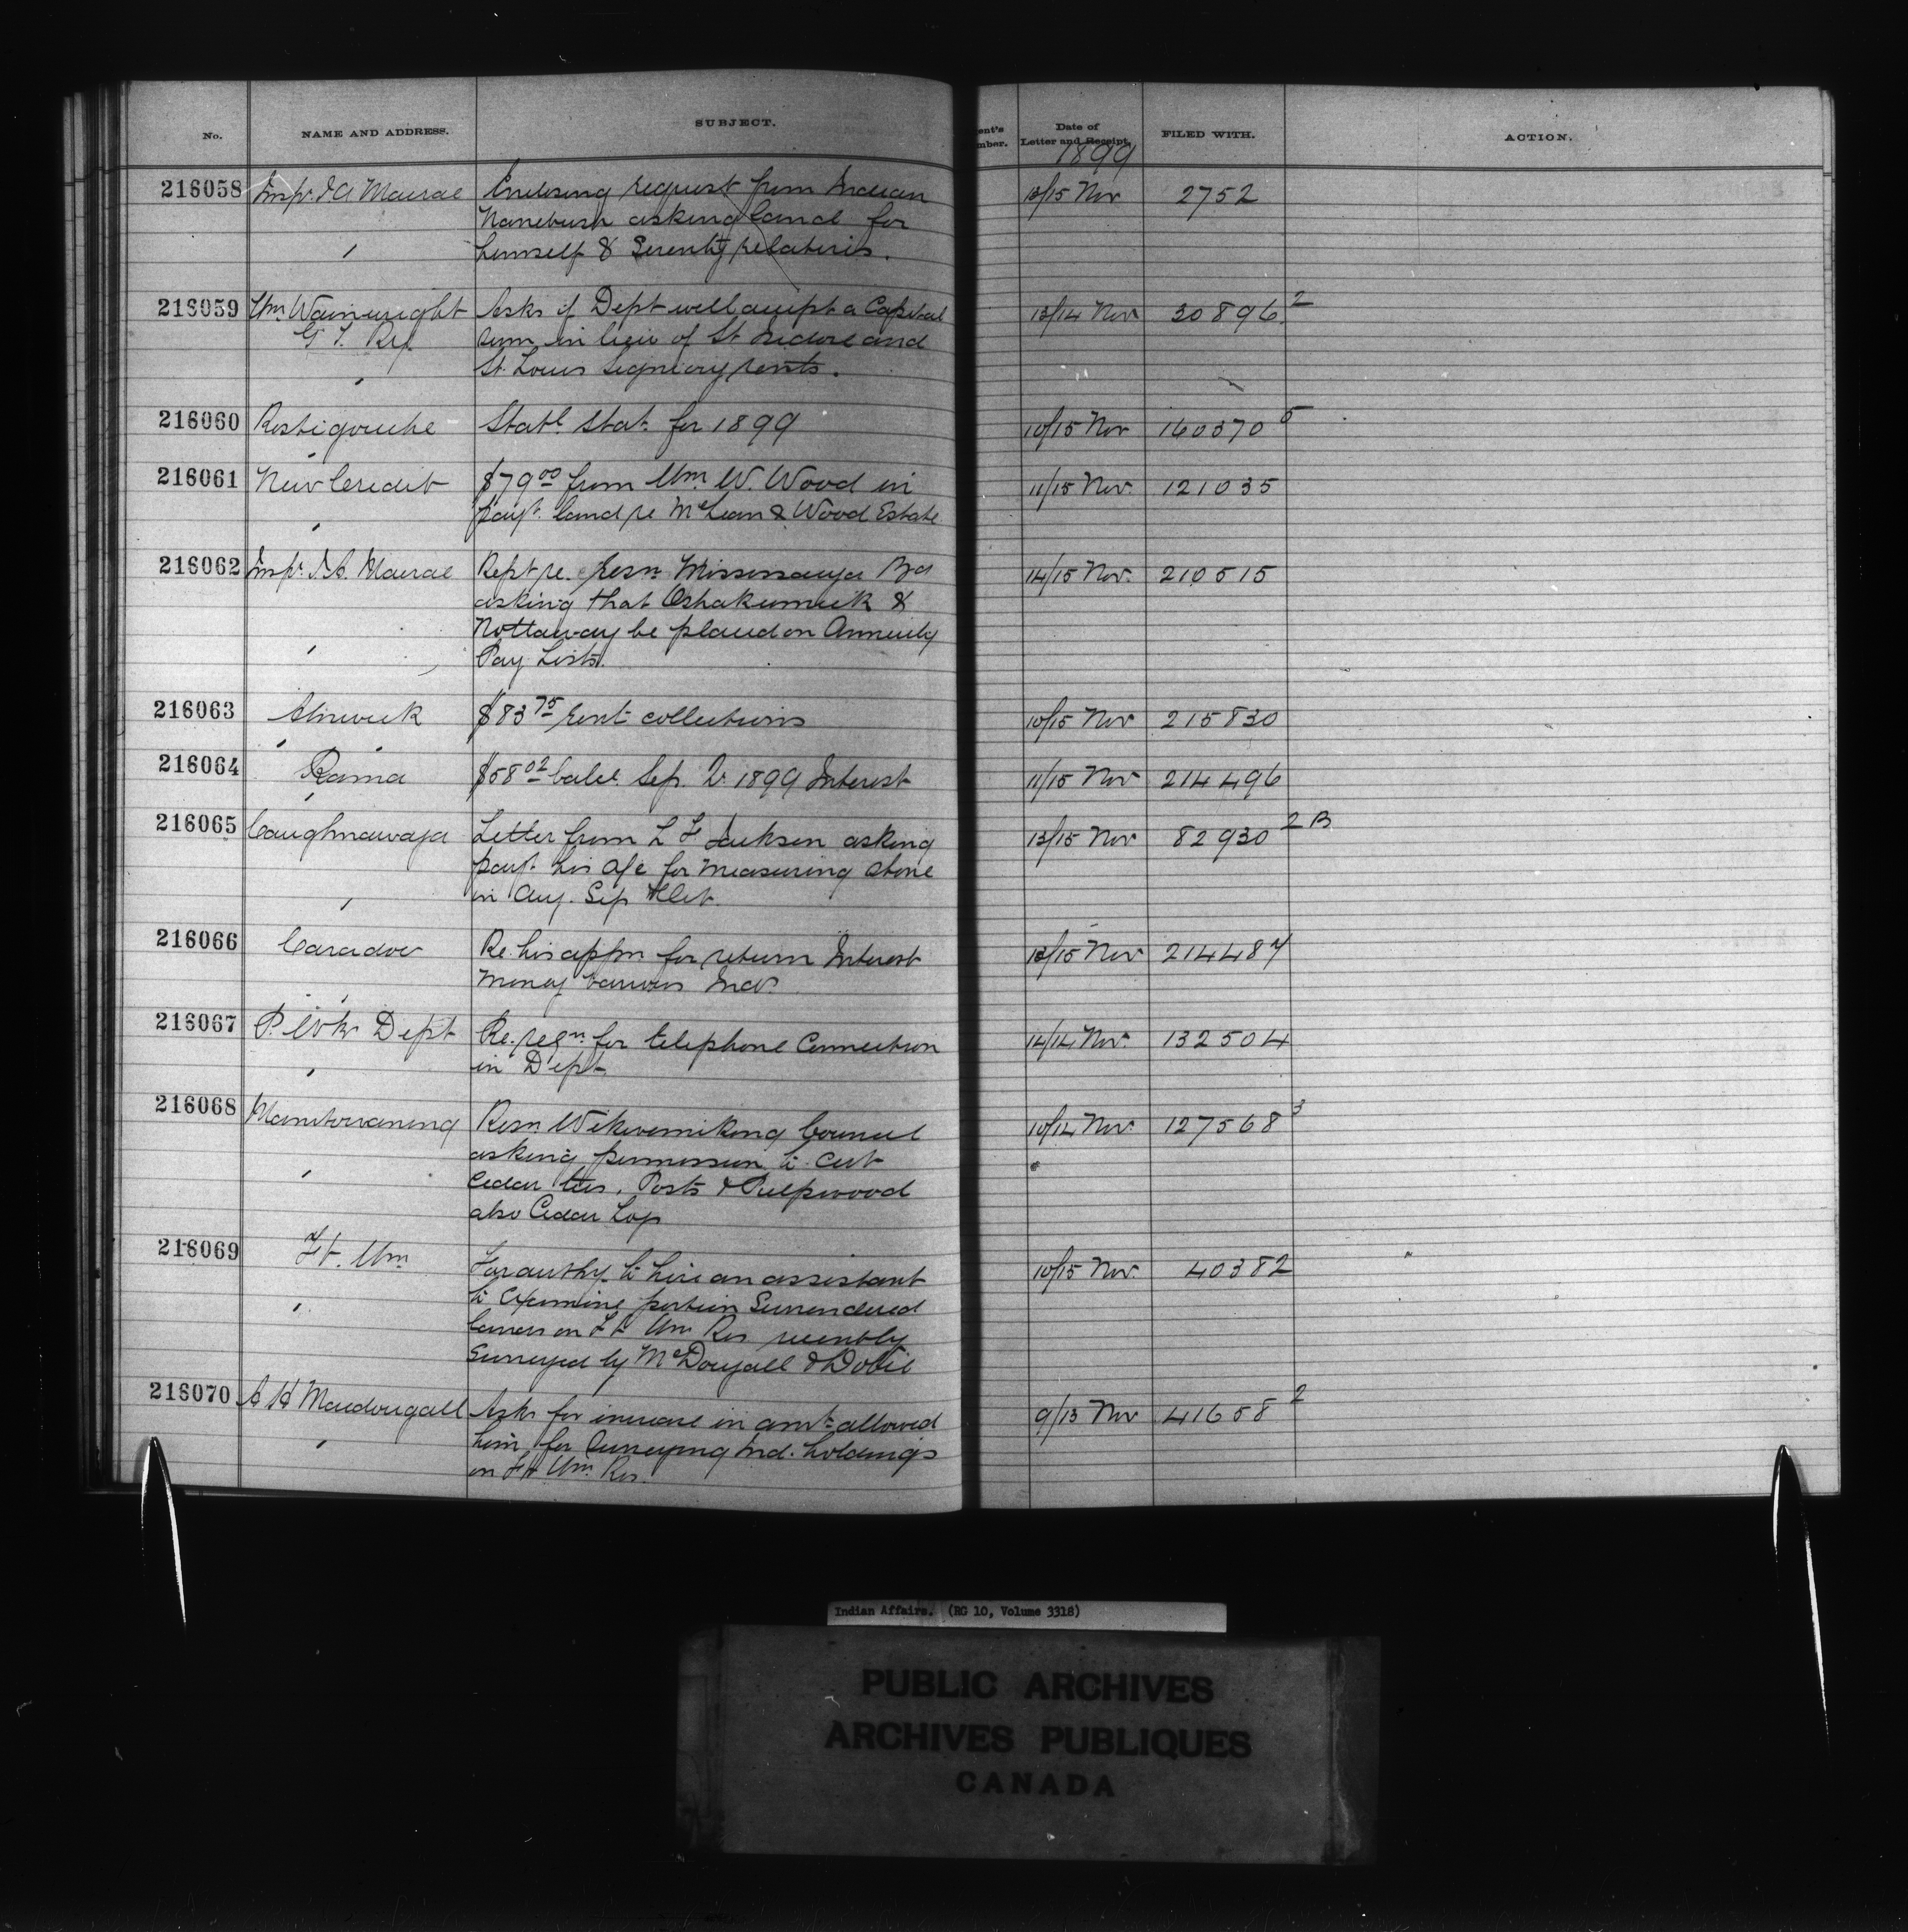 No. NAME AND ADDRESS. SUBJECT. ent's mber. Date of Letter and Receipt. FILED WITH. ACTION.
1899
216058 Insp. J A Macrae Enclosing request from Indian 13/15 Nov 2752
asking land for
himself & Seventy relatives.
216059 Wm Wainwright Asks if Dept will accept a Capital 13/14 Nov 30896 2
G T. Ry. sum in lieu of St Isidore and
St. Louis Seigniory rents.
216060 Restigouche Statl. Stat. for 1899 10/15 Nov 160370 5
216061 New Credit $79 00 from Wm W. Wood in 11/15 Nov. 121035
payt. land re McLean & Wood Estate
216062 Insp. J. A. Macrae Rept re. Resn. Mississauga Bd 14/15 Nov. 210515
asking that Oshakumuik &
Nottaway be placed on Annuity
Pay Lists.
216063 Alnwick $83 75 rent collections 10/15 Nov 215830
216064 Rama $58 02 balce. Sep. Qr. 1899 Interest 11/15 Nov 214496
216065 Caughnawaga Letter from L F Jackson asking 13/15 Nov 82930 2 B
payt. his a/c for measuring stone
in Aug. Sep & Oct.
216066 Caradoc Re. his appn for return Interest 13/15 Nov 214487
Money various Inds.
216067 P. Wks Dept Re. reqn. for telephone Connection 14/14 Nov. 132504
in Dept.
216068 Manitowaning Resn. Wikwemikong Council 10/14 Nov. 127568 3
asking permission to cut
Cedar ties, Posts & Pulpwood
also Cedar Logs
216069 Ft. Wm For authy. to hire an assistant 10/15 Nov. 40382
to examine portion Surrendered
lands on Ft Wm Res recently
Surveyed by McDougall & Dobie
216070 A H Macdougall Asks for increase in amt. allowed 9/13 Nov 41658 2
him for Surveying Ind. holdings
on Ft Wm. Res.
Indian Affairs. (RG 10, Volume 3318)
PUBLIC ARCHIVES
ARCHIVES PUBLIQUES
CANADA